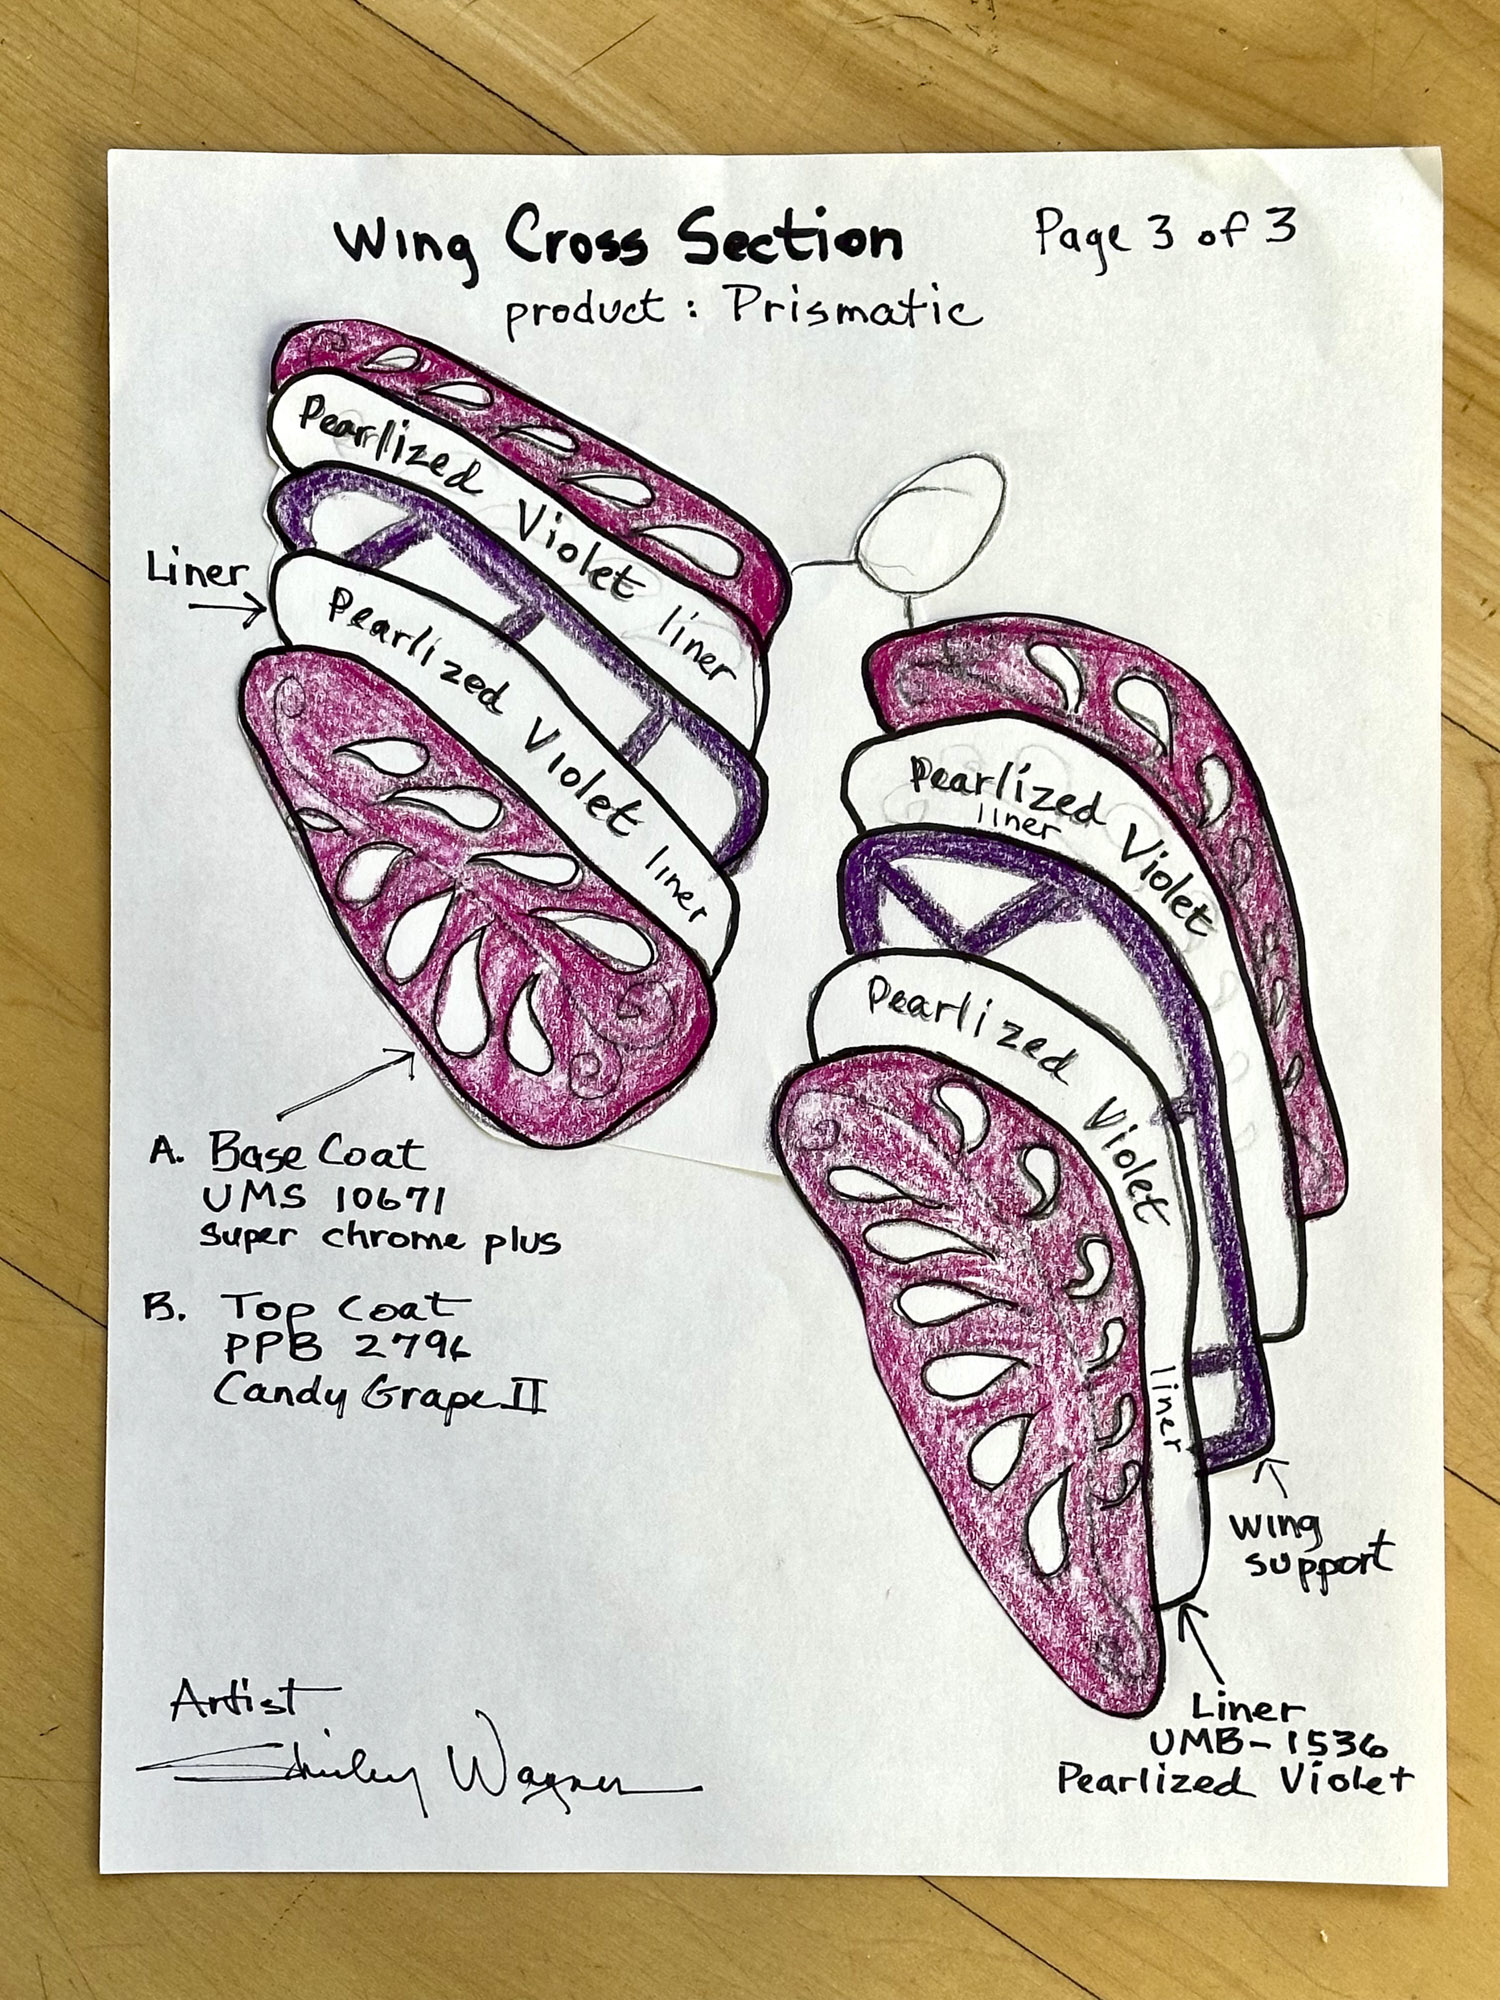 Wing Cross Section
Page 3 of 3
product: Prismatic
Pearlized Violet liner
Liner
Pearlized Violet liner
Pearlized Violet
liner
Pearlized Violet
liner
A. Base Coat
UMS 10671
super chrome plus
B. Top Coat
PPB 2796
Candy Grape II
wing
support
Artist
Shirley Wagner
Liner
UMB-1536
Pearlized Violet